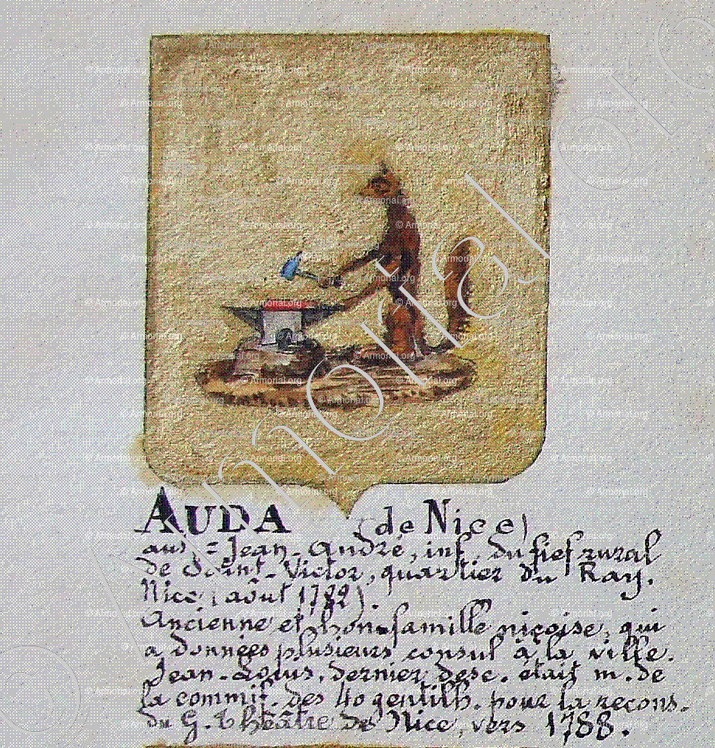 AUDA (de Nice)
auj. = Jean-André, inf. du fief rural
de Saint-Victor, quartier du Ray.
Nice (août 1782).
Ancienne et bonne famille niçoise, qui
a données plusieurs consul à la ville.
Jean-Louis, dernier desc. était m. de
la commis. des 40 gentilh. pour la recons.
du G. Théâtre de Nice, vers 1788.
© Armorial.org
Armorial